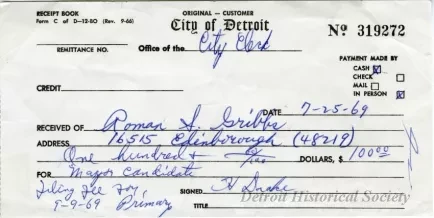 RECEIPT BOOK ORIGINAL - CUSTOMER
Form C of D-12-80 (Rev. 9-66) City of Detroit Nº 319272
REMITTANCE NO. Office of the City Clerk
PAYMENT MADE BY
CASH
CHECK
CREDIT MAIL
IN PERSON
DATE 7-25-69
RECEIVED OF Roman S. Gribbs
ADDRESS 16515 Edinborough (48219)
One hundred & 00/100 DOLLARS, $ 100.00
FOR Mayor Candidate
Filing Fee for SIGNED H Drake
9-9-69 Primary
TITLE
Detroit Historical Society